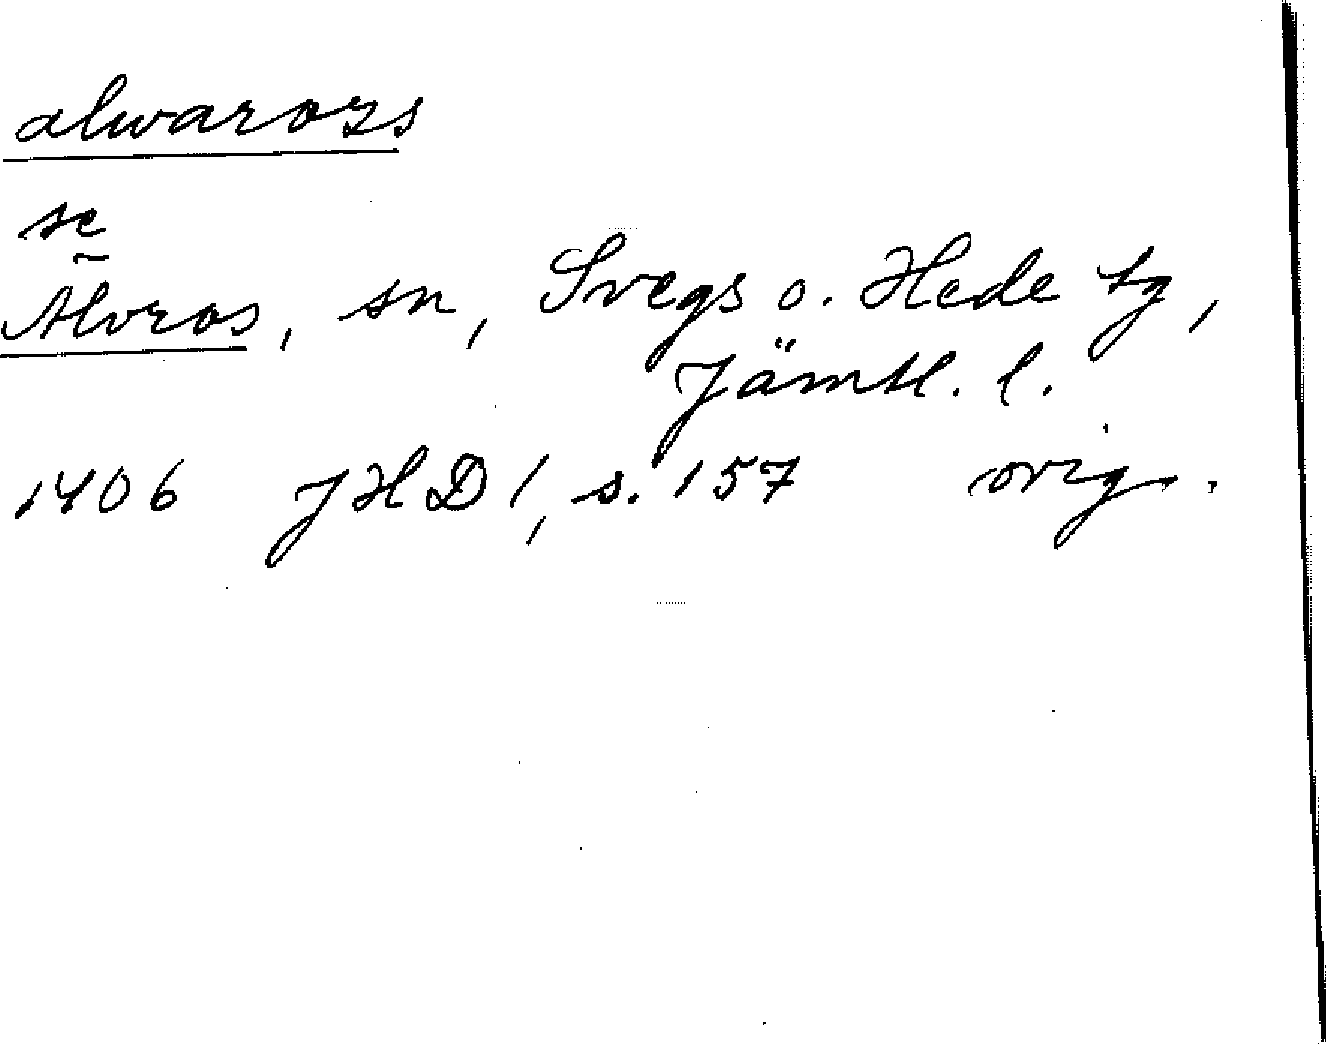 alwaross
se
Älvros, sn, Svegs o. Hede tg,
Jämtl. l.
1406 JHD 1, s. 157 orig.